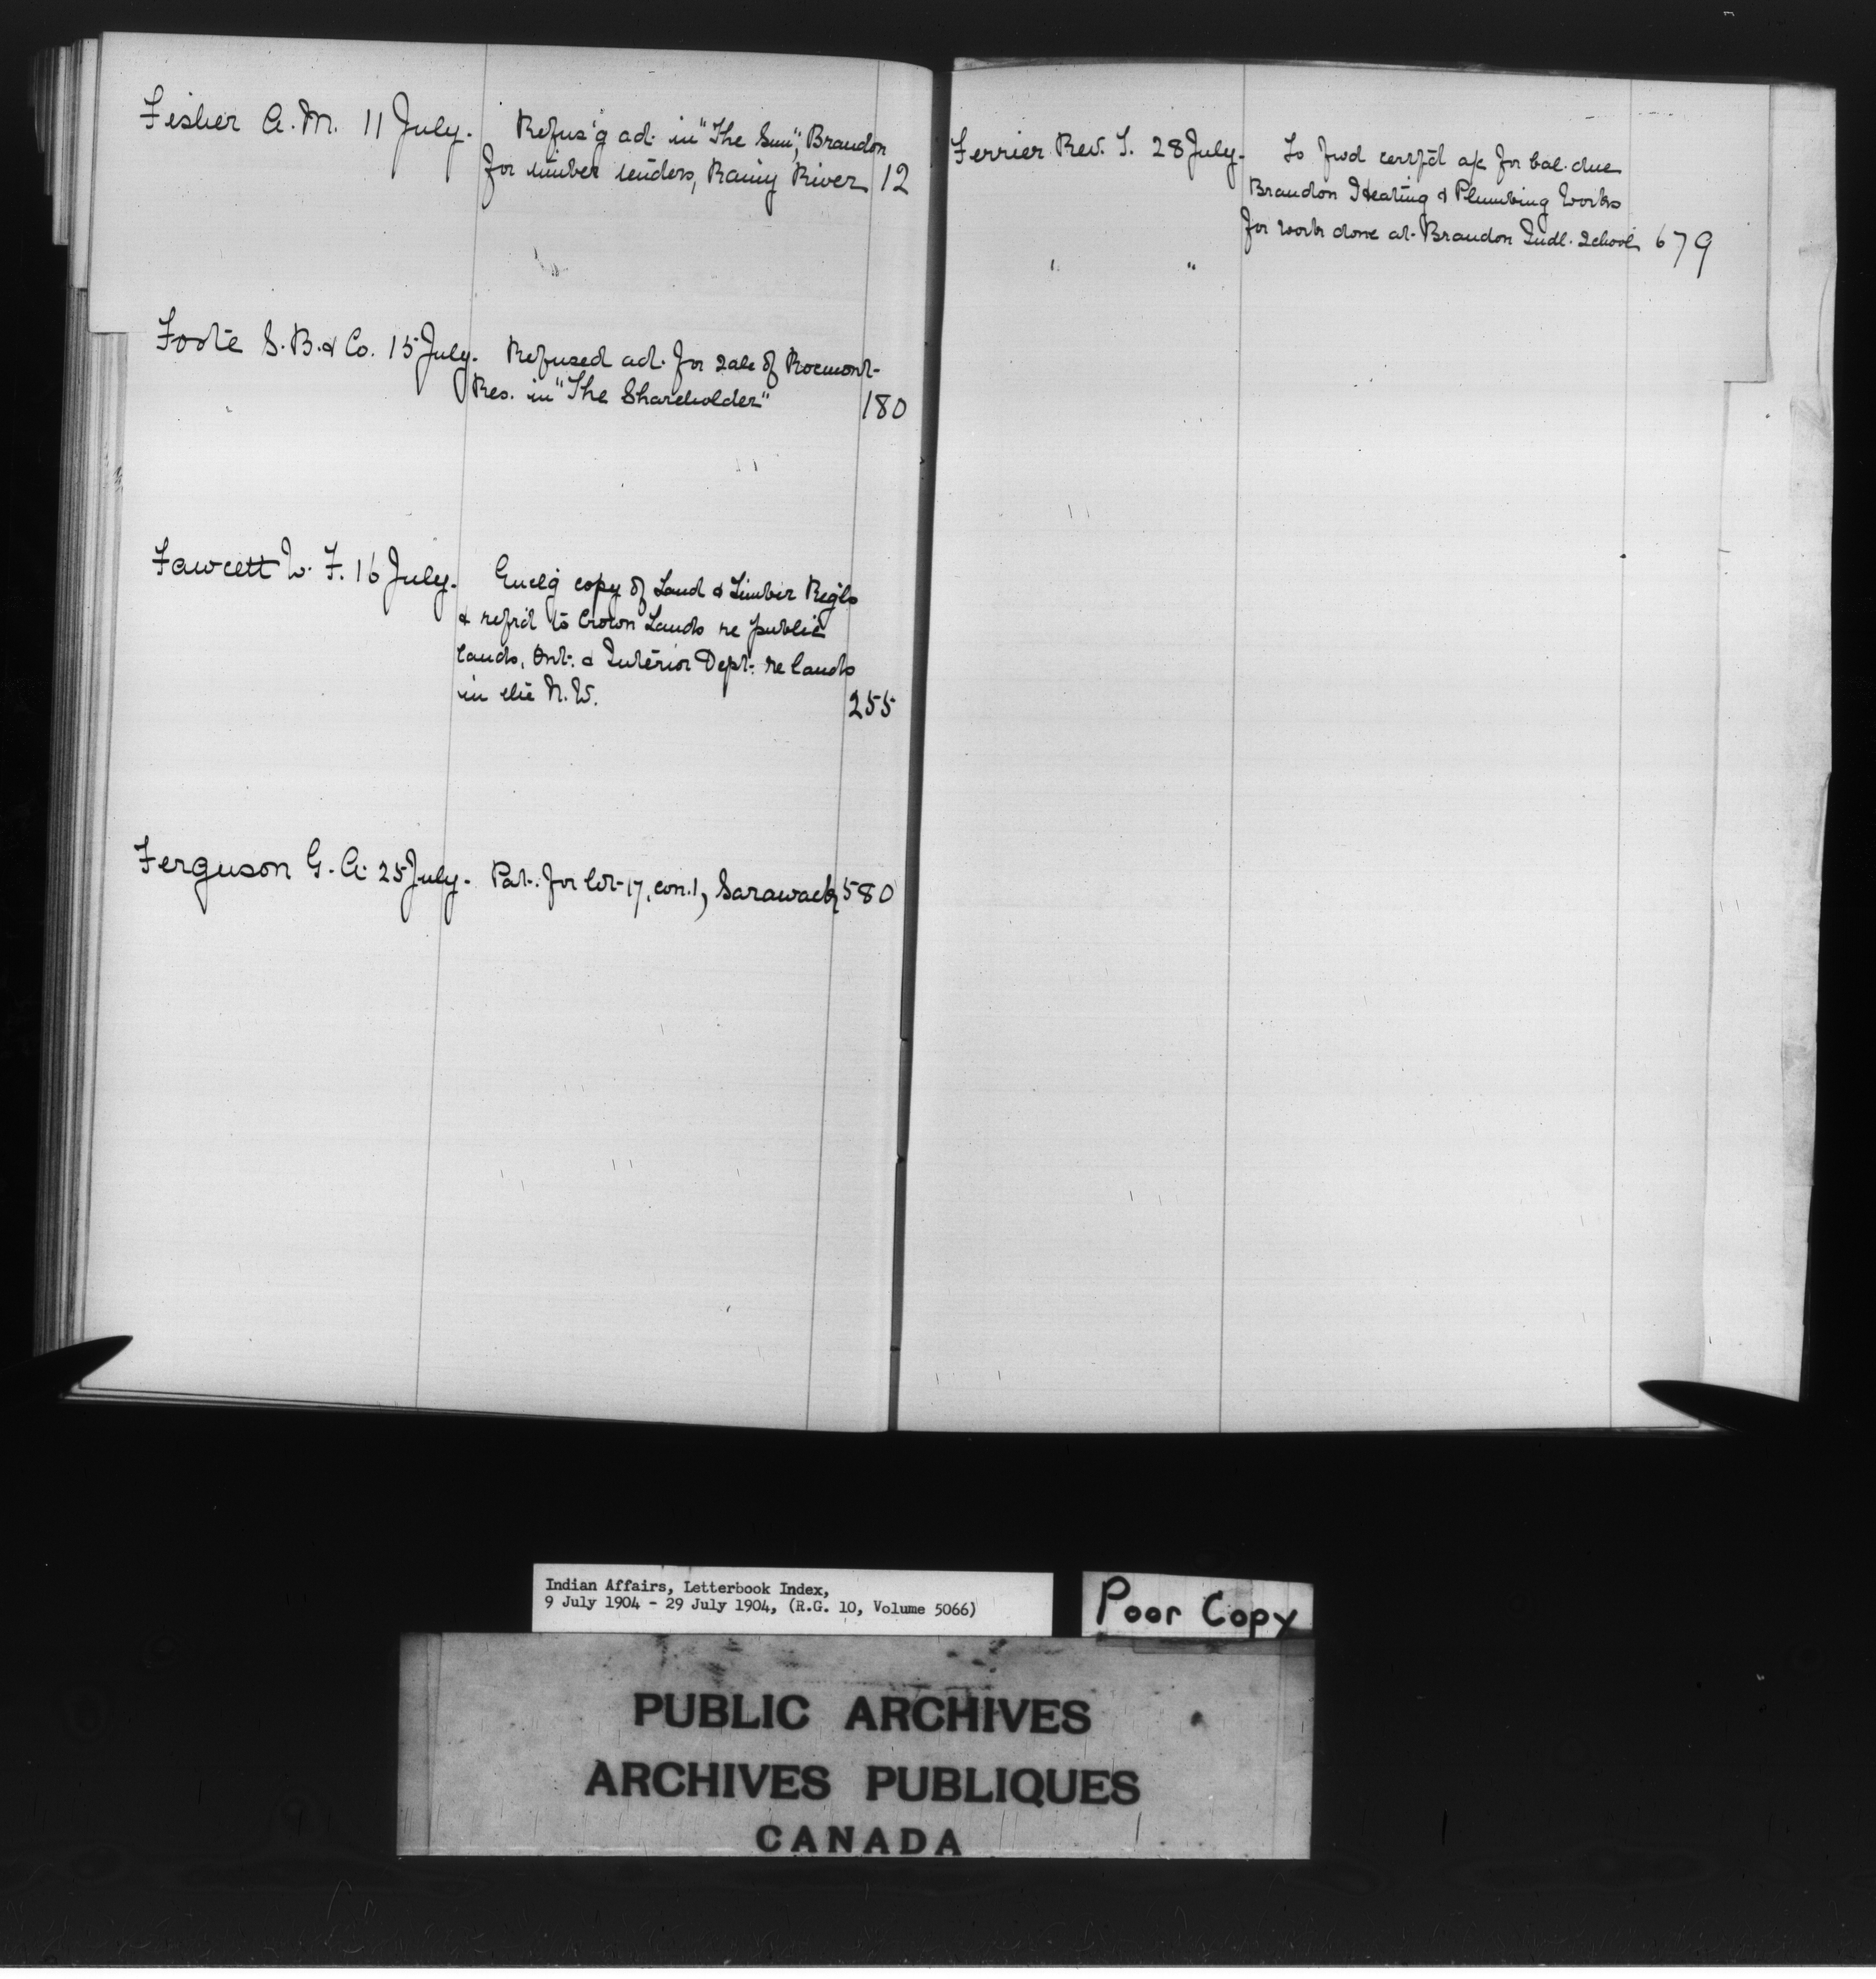 Fisher A. M. 11 July. Refus'g ad. in "The Sun", Brandon
for timber tenders, Rainy River 12
Foote S. B. & Co. 15 July. Refused ad. for sale of
Res. in "The Shareholder" 180
Fawcett W. F. 16 July. Encl'g copy of Land & Timber Reg'ls
& refr'd to Crown Lands re public
lands, Ont. & Interior Dept. re lands
in the N.W. 255
Ferguson G. A. 25 July. Pat. for lot 17, con. 1, Sarawack 580
Ferrier Rev. T. 28 July. To fwd certf'd a/c for bal. due
Brandon Heating & Plumbing Works
for work done at Brandon Indl. School 679
" "
Indian Affairs, Letterbook Index,
9 July 1904 - 29 July 1904, (R.G. 10, Volume 5066)
Poor Copy
PUBLIC ARCHIVES
ARCHIVES PUBLIQUES
CANADA